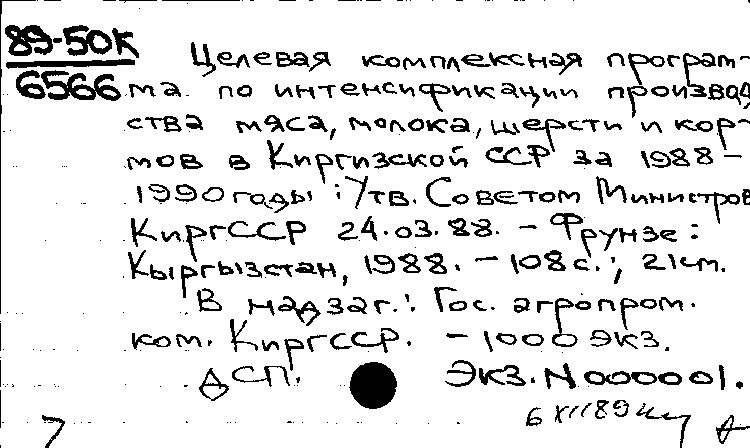 89-50К
6566
Целевая комплексная програм-
ма по интенсификации производ
ства мяса, молока, шерсти и кор-
мов в Киргизской ССР за 1988-
1990 годы: Утв. Советом Министров
КиргССР 24.03.88. - Фрунзе:
Кыргызстан, 1988. - 108с.; 21см.
В надзаг.: Гос. агропром.
ком. КиргССР. - 1000 экз.
ДСП. Экз. N 000001.
6 XII 89
7